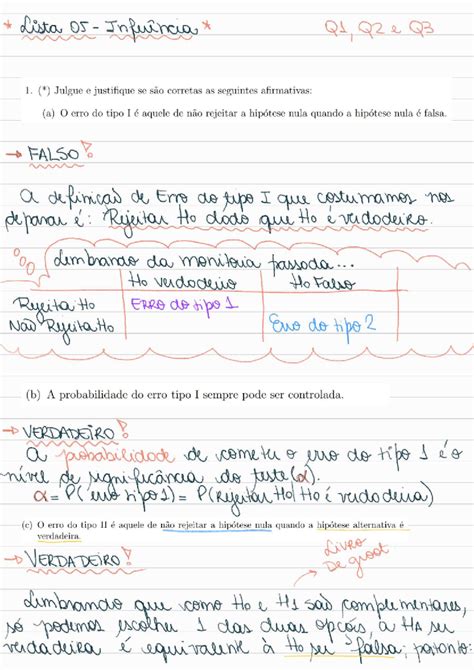 * Lista 05 - Inferência *
Q1, Q2 e Q3
1. (*) Julgue e justifique se são corretas as seguintes afirmativas:
(a) O erro do tipo I é aquele de não rejeitar a hipótese nula quando a hipótese nula é falsa.
→ FALSO!
A definição de Erro do tipo I que costumamos nos
deparar é: Rejeitar Ho dado que Ho é verdadeiro.
Lembrando da monitoria passada...
Ho verdadeiro Ho Falso
Rejeita Ho ERRO do tipo 1
Não Rejeita Ho Erro do tipo 2
(b) A probabilidade do erro tipo I sempre pode ser controlada.
→ VERDADEIRO!
A probabilidade de cometer o erro do tipo 1 é o
nível de significância do teste (α).
α = P(erro tipo 1) = P(Rejeitar Ho | Ho é verdadeira)
(c) O erro do tipo II é aquele de não rejeitar a hipótese nula quando a hipótese alternativa é
verdadeira.
→ VERDADEIRO!
Livro
De groot
Lembrando que como Ho e H1 são complementares,
só podemos escolher 1 das duas opções, a HA ser
verdadeira é equivalente à Ho ser falsa; portanto: